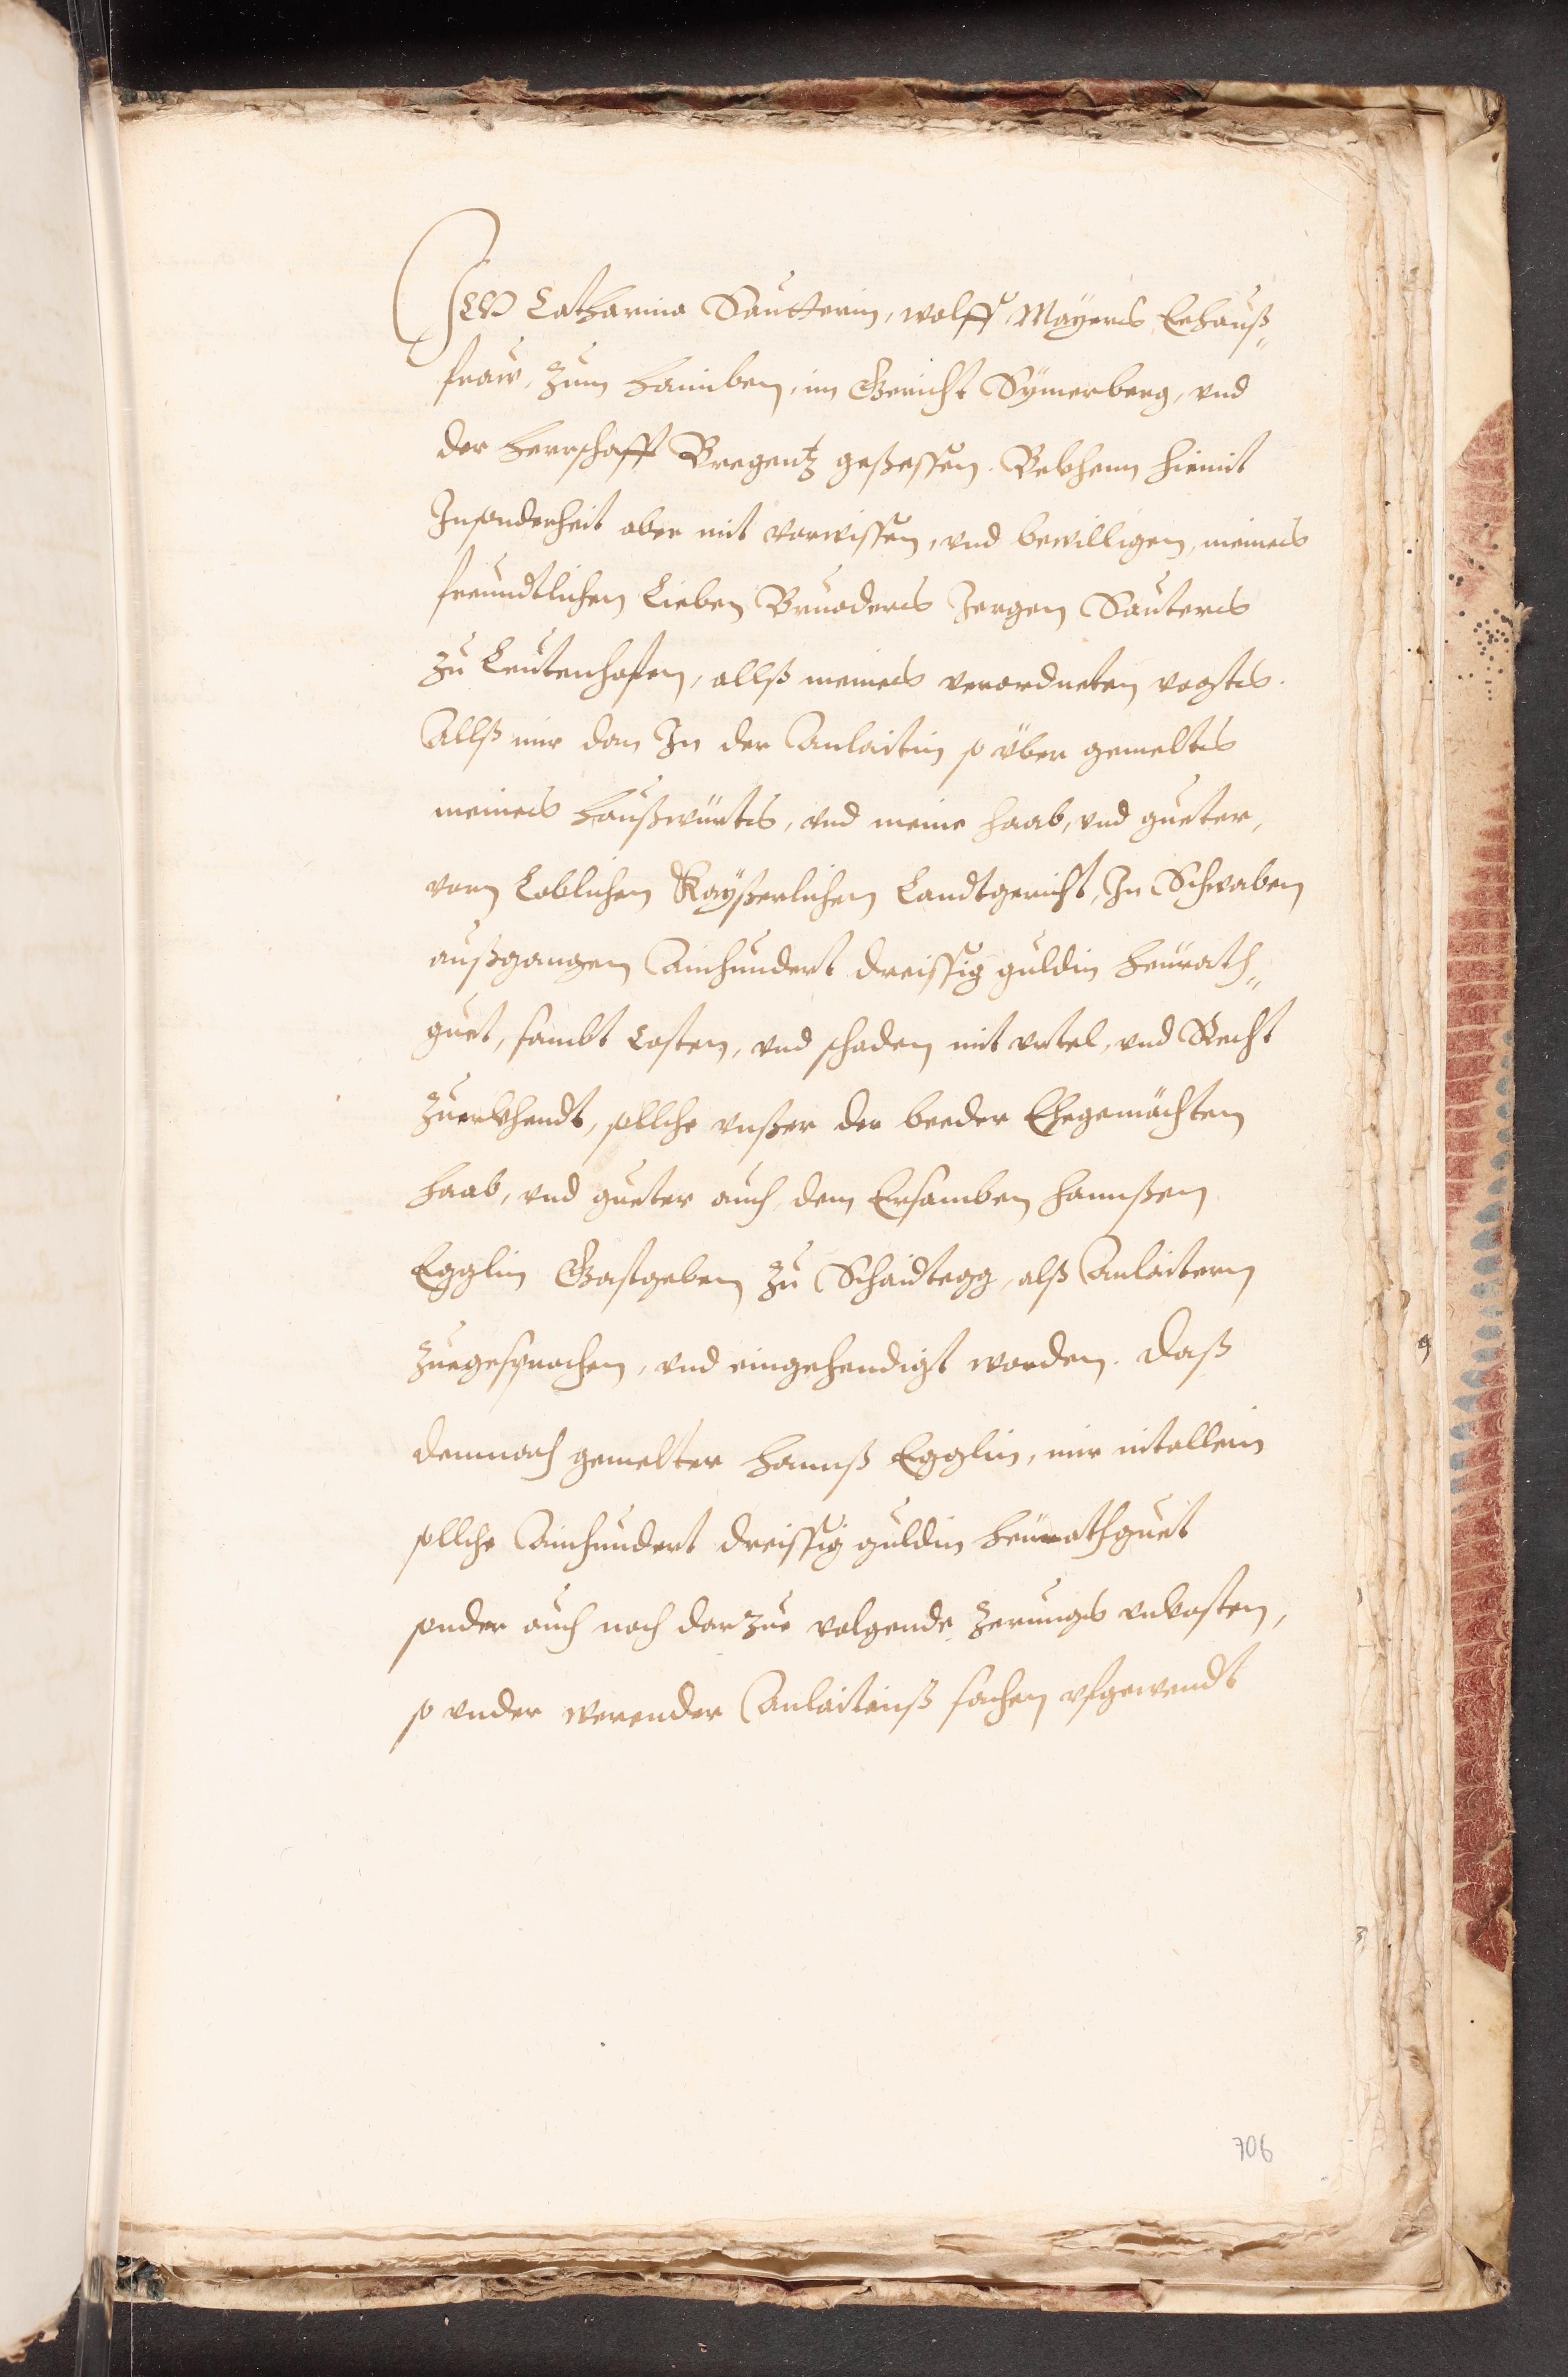 ICH Catharina Sautterin, wolff Mayers Eehauß„
fraw, zum hainben, im Gericht Symerberg, vnd
der herrschafft Bregentz geßessen. Bekhenn hiemit
Insonderheit aber mit vorwissen, vnd bewilligen, meines
freundtlichen Lieben Bruoders Jergen Sauters
zu Leutenhofen, allß meines verordneten vogts.
Allß mir dan In der Anlaitin so über gemelts
meines haußwürts, vnd meine haab, vnd güeter,
vom Loblichen Kayßerlichen Landtgericht, In Schwaben
außgangen Ainhundert dreissig guldin heürath„
guet, sambt Costen, vnd schaden mit vrtel, vnd Recht
zuerkhendt, sollche vnßer der beeder Ehegemächten
haab, vnd güeter auch dem Ersamben hannßen
Egglin Gastgeben zu Schaidtegg, alß Anlaitern
zuegesprochen, vnd eingehendigt worden. Daß
demnach gemelter hannß Egglin, mir nitallein
sollche Ainhundert dreissig guldin heürathguet
sonder auch noch darzue volgende Zerungs vnkosten,
so vnder werender Anlaitinß sachen vfgewendt
706